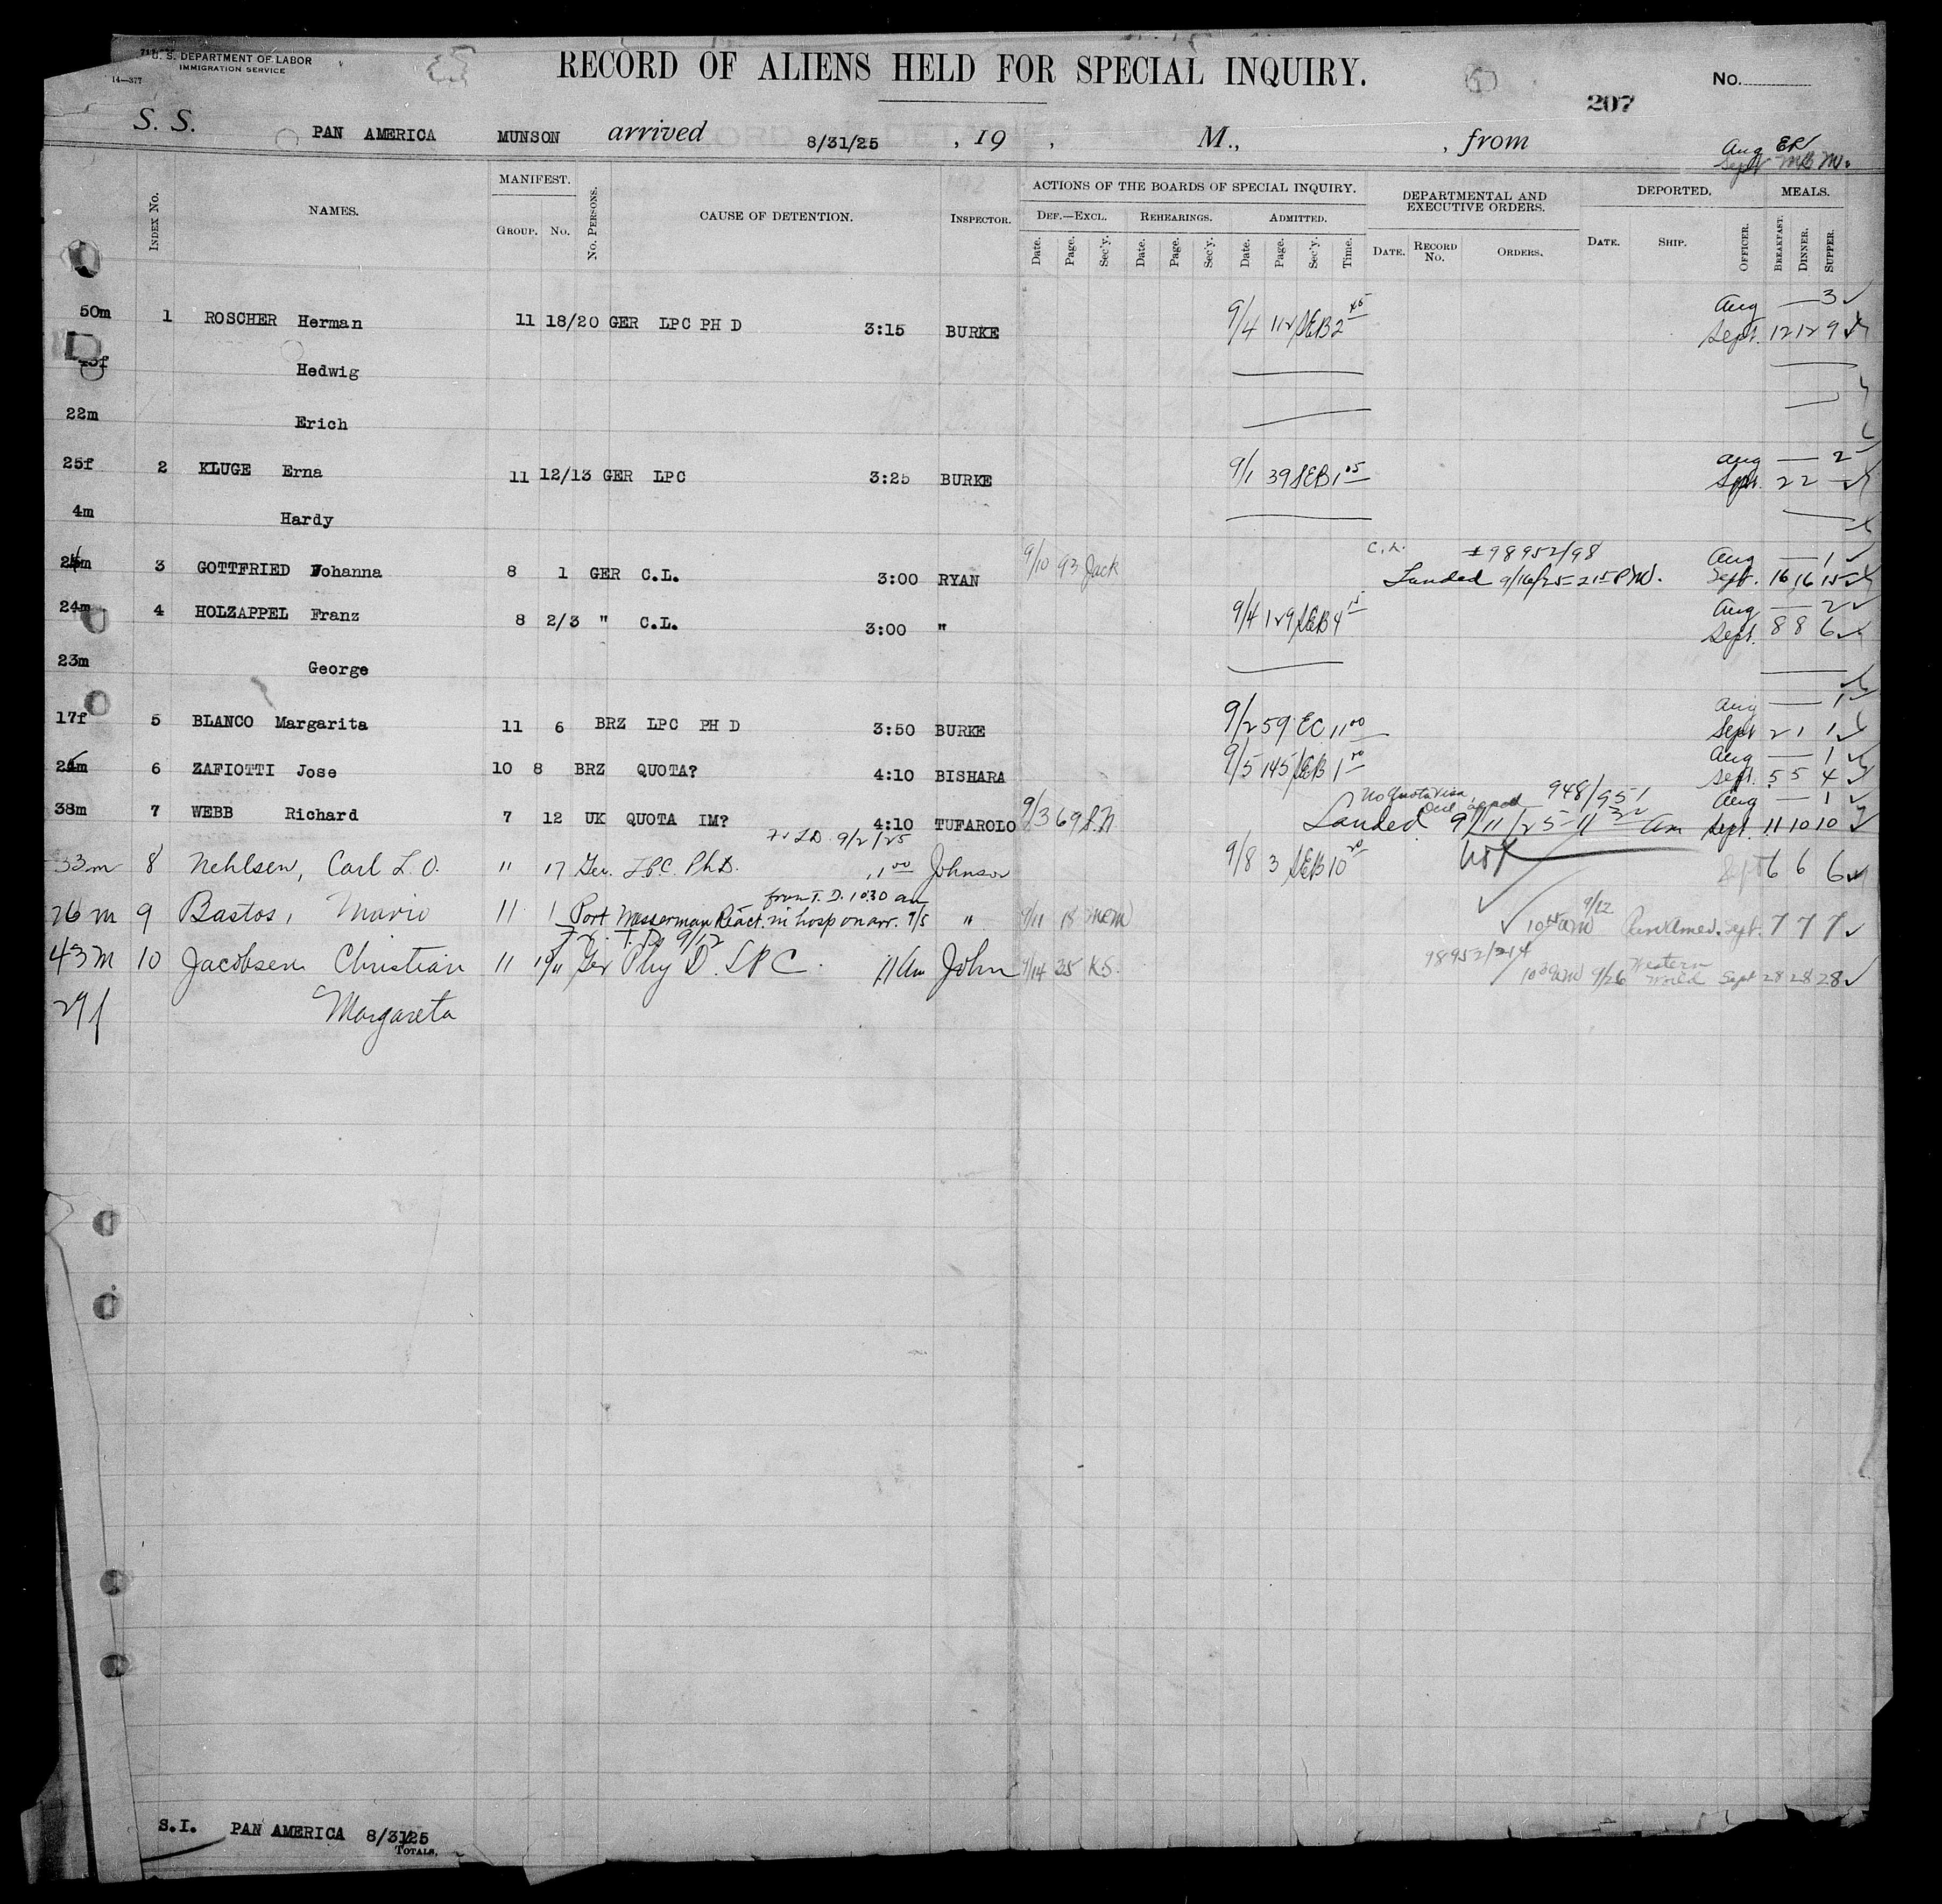 U. S. DEPARTMENT OF LABOR
IMMIGRATION SERVICE
14—377
RECORD OF ALIENS HELD FOR SPECIAL INQUIRY.
No.
207
S. S. PAN AMERICA MUNSON arrived 8/31/25 , 19 , M., , from
Aug ER
Sept MB M.
INDEX No. NAMES. MANIFEST. GROUP. No. No. PERSONS. CAUSE OF DETENTION. INSPECTOR. ACTIONS OF THE BOARDS OF SPECIAL INQUIRY. DEPARTMENTAL AND EXECUTIVE ORDERS. DEPORTED. MEALS.
DEF.—EXCL. REHEARINGS. ADMITTED.
Date. Page. Sec'y. Date. Page. Sec'y. Date. Page. Sec'y. Time. DATE. RECORD No. ORDERS. DATE. SHIP. OFFICER. BREAKFAST. DINNER. SUPPER.
50m 1 ROSCHER Herman 11 18/20 GER LPC PH D 3:15 BURKE 9/4 112 SEB 2 45 Aug — 3
Sept. 12 12 9
Hedwig
22m Erich
25f 2 KLUGE Erna 11 12/13 GER LPC 3:25 BURKE 9/1 39 SEB 1 05 Aug — 2
Sept. 2 2 —
4m Hardy
3 GOTTFRIED Johanna 8 1 GER C.L. 3:00 RYAN 9/10 93 Jack C.L. #98952/98 Aug — 1
Landed 9/16/25 - 2 15 P.M. Sept. 16 16 15
24m 4 HOLZAPPEL Franz 8 2/3 " C.L. 3:00 " 9/4 129 SEB 4 15 Aug — 2
Sept. 8 8 6
23m George
17f 5 BLANCO Margarita 11 6 BRZ LPC PH D 3:50 BURKE 9/2 59 EC 11 00 Aug — 1
Sept 2 1 1
24m 6 ZAFIOTTI Jose 10 8 BRZ QUOTA? 4:10 BISHARA 9/5 145 SEB 1 00 Aug — 1
Sept. 5 5 4
38m 7 WEBB Richard 7 12 UK QUOTA IM? 4:10 TUFAROLO 9/3 69 S.N No Quota Visa, 948/951 Aug — 1
Landed 9/11/25 - 11 am Sept. 11 10 10
9/2/25
33m 8 Nehlsen, Carl L. O. " 17 Ger. LPC. Ph.D. 1 00 Johnson 9/8 3 SEB 10 20 Sept 6 6 6
from T. D. 10 30 am
26m 9 Bastos, Mario 11 1 Port Wasserman React. in hosp on arr. 9/5 " 9/11 9/12 Pan Amer. Sept. 7 7 7
T. D. 9/12
43m 10 Jacobsen Christian 11 10/11 Ger Phy D. LPC. 11 am John 9/14 35 K.S. 98952/214 10 30 am 9/26 Western World Sept 28 28 28
29f Margareta
S.I. PAN AMERICA 8/31/25
TOTALS.